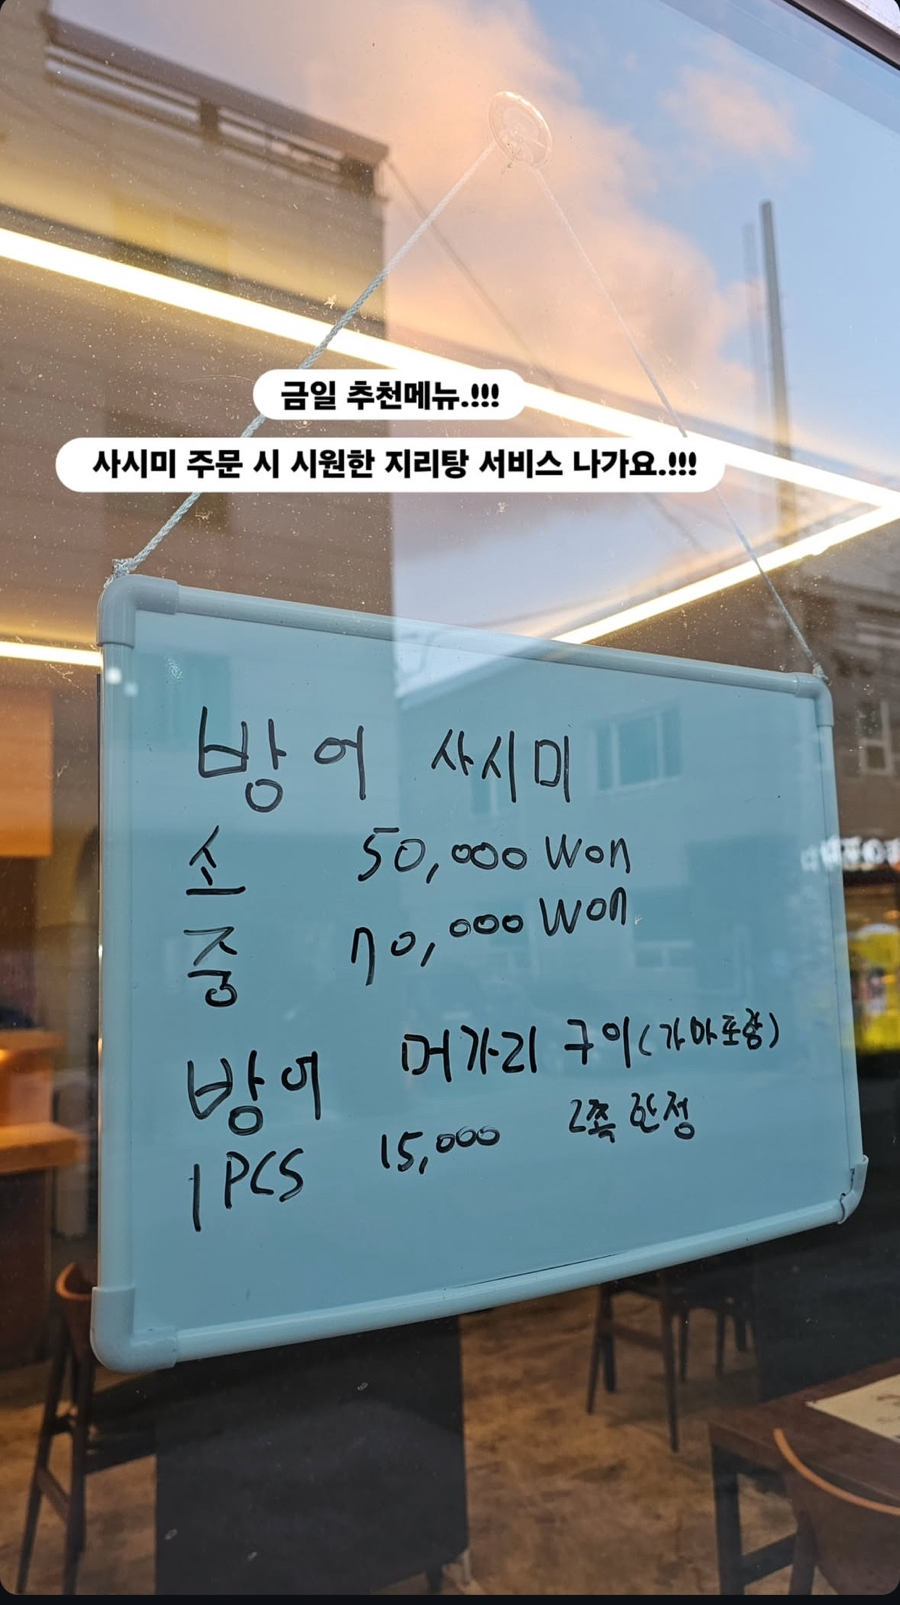 금일 추천메뉴.!!!
사시미 주문 시 시원한 지리탕 서비스 나가요.!!!
방어 사시미
소 50,000 Won
중 70,000 Won
방어 머가리 구이(가마포함)
1PCS 15,000 2쪽 한정